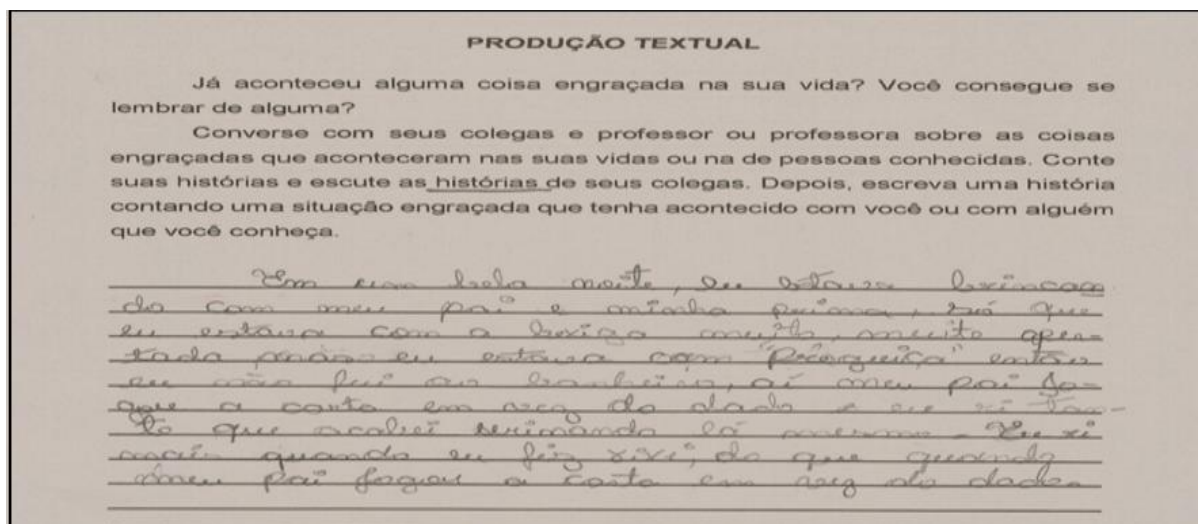 PRODUÇÃO TEXTUAL
Já aconteceu alguma coisa engraçada na sua vida? Você consegue se
lembrar de alguma?
Converse com seus colegas e professor ou professora sobre as coisas
engraçadas que aconteceram nas suas vidas ou na de pessoas conhecidas. Conte
suas histórias e escute as histórias de seus colegas. Depois, escreva uma história
contando uma situação engraçada que tenha acontecido com você ou com alguém
que você conheça.
Em um bela noite, eu estava brincan
do com meu pai e minha prima, só que
eu estava com a bexiga muito, muito aper-
tada eu estava com "Preguiça" então
eu não fui ao banheiro, aí meu pai jo-
a carta em vez do dado e eu ri tan-
to que acabei lá mesmo. Eu ri
mais quando eu fiz xixi, do que quando
meu pai a carta em vez do dado.